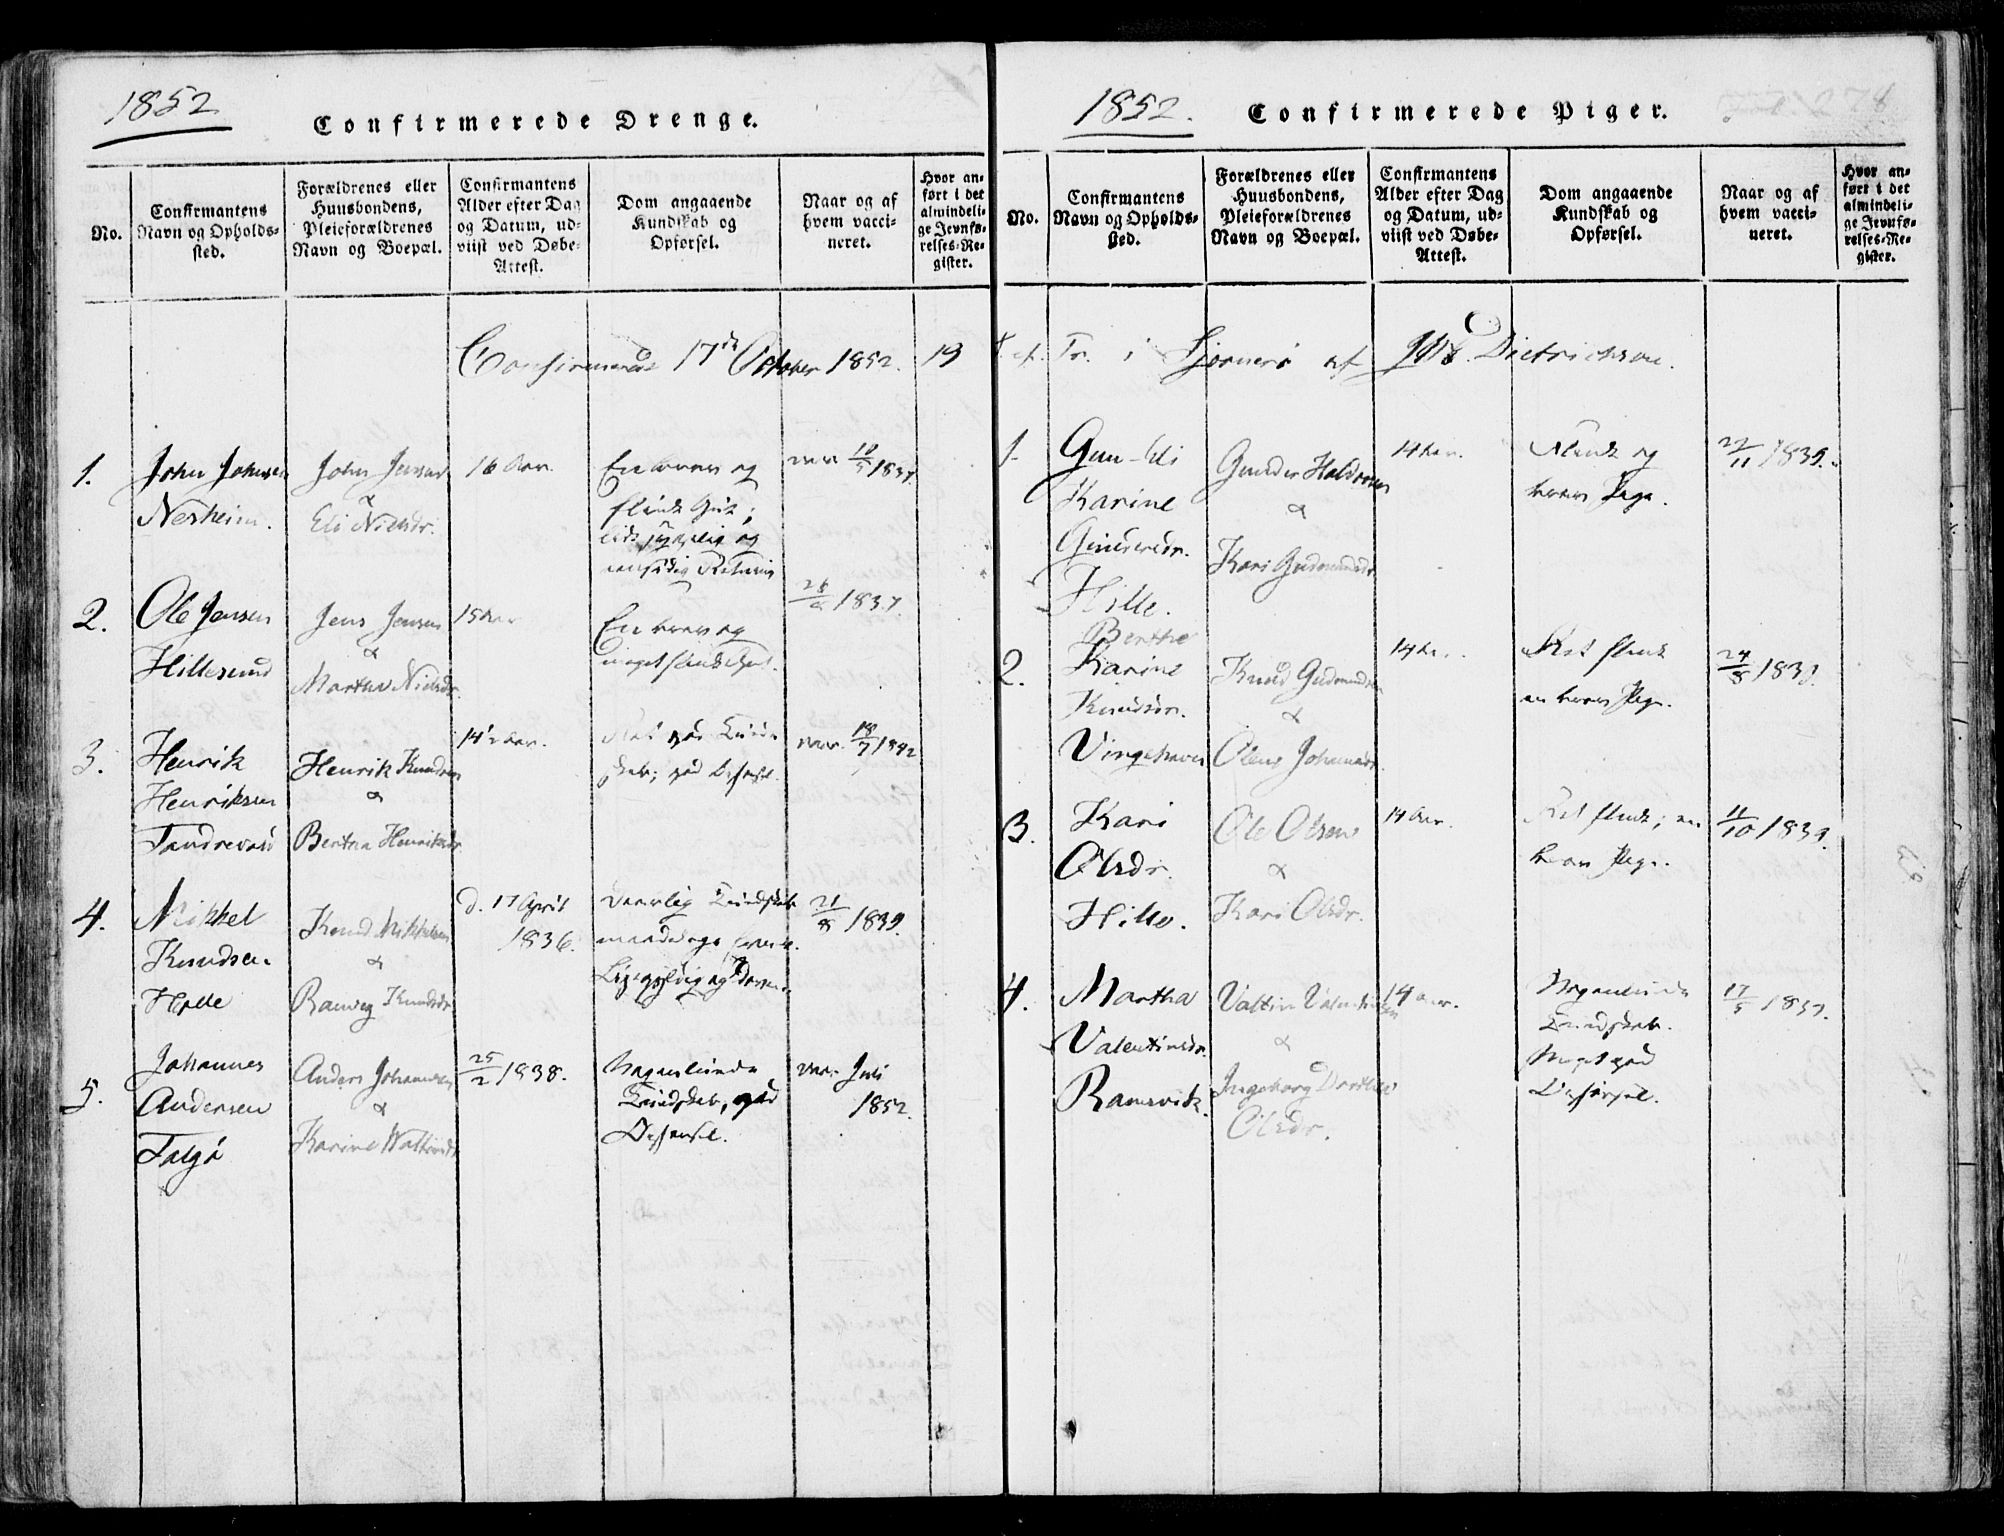 1852
Confirmerede Drenge.
No.
Confirmantens
Navn og Opholds-
sted.
Forældrenes eller
Huusbondens,
Pleieforældrenes
Navn og Boepæl.
Confirmantens
Alder efter Dag
og Datum, ud-
viist ved Døbe-
Attest.
Dom angaaende
Kundskab og
Opførsel.
Naar og af
hvem vacci-
neret.
Hvor an-
ført i det
almindeli-
ge Jevnfø-
relses-Re-
gister.
Confirmerede 17de October 1852. 19
1.
John Johnsen
Nesheim.
John Jensen
&
Eli Nielsdr.
16 Aar.
En brav og
flink Gut;
1837.
2.
Ole Jensen
Hillesund
Jens Jensen
&
Martha Nielsdr.
15 Aar
En brav og
meget flink Gut.
1837.
3.
Henrik
Henriksen
Tandrevold
Henrik Knudsen
&
Bertha Henriksdr.
14½ Aar.
Ret god Kund-
skab; god Opførsel.
vacc. 18/7 1842
4.
Mikkel
Knudsen
Helle
Knud Mikkelsen
&
Ranveg Knudsdr.
d. 17 April
1836.
Daarlig Kundskab
21/8 1839.
5.
Johannes
Andersen
Talgø
Anders Johannesen
&
Karine Waltinsdr.
25/2 1838.
Kundskab, god
Opførsel.
vacc. Juli
1852.
1852.
Confirmerede Piger.
Fol. 278
No.
Confirmantens
Navn og Opholds-
sted.
Forældrenes eller
Huusbondens,
Pleieforældrenes
Navn og Boepæl.
Confirmantens
Alder efter Dag
og Datum, ud-
viist ved Døbe-
Attest.
Dom angaaende
Kundskab og
Opførsel.
Naar og af
hvem vacci-
neret.
Hvor an-
ført i det
almindeli-
ge Jevnfø-
relses-Re-
gister.
Tr. i Sjernerø af Dietrichson.
1.
Gunhli
Karine
Gundersdr.
Hille.
Gunder Haldorsen
&
Kari Gudmundsdr.
14 Aar.
Flink og
brav Pige.
22/11 1839.
2.
Berthe
Karine
Knudsdr.
Vingehaven
Knud Gudmundsen
&
Olene Johannesdr.
14 Aar.
Ret flink
en brav Pige.
24/8
3.
Kari
Olsdr.
Hille.
Ole Olsen
&
Kari Olsdr.
14 Aar.
Ret flink; en
brav Pige.
11/10 1839.
4.
Martha
Valentinsdr.
Ramsvik.
Valtin Valentinsen
&
Ingeborg Dorthea
Olsdr.
14 Aar.
Kundskab.
Meget god
Opførsel.
17/5